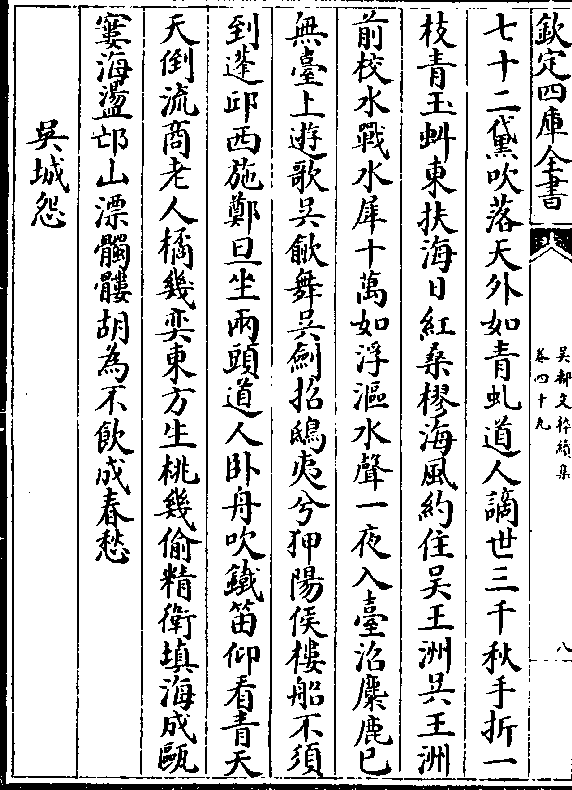 欽定四庫全書
吳都文粹續集
卷四十九
八
七十二黛吹落天外如青虬道人謫世三千秋手折一
枝青玉虯東扶海日紅桑樛海風約住吴王洲吴王洲
前校水戰水犀十萬如浮漚水聲一夜入臺沼麋鹿已
無臺上遊歌吴歈舞吴劍招鴟夷兮狎陽侯樓船不須
到蓬邱西施鄭旦坐兩頭道人卧舟吹鐵笛仰看青天
天倒流商老人橘幾奕東方生桃幾偷精衛填海成甌
窶海盪邙山漂髑髏胡為不飲成春愁
吳城怨